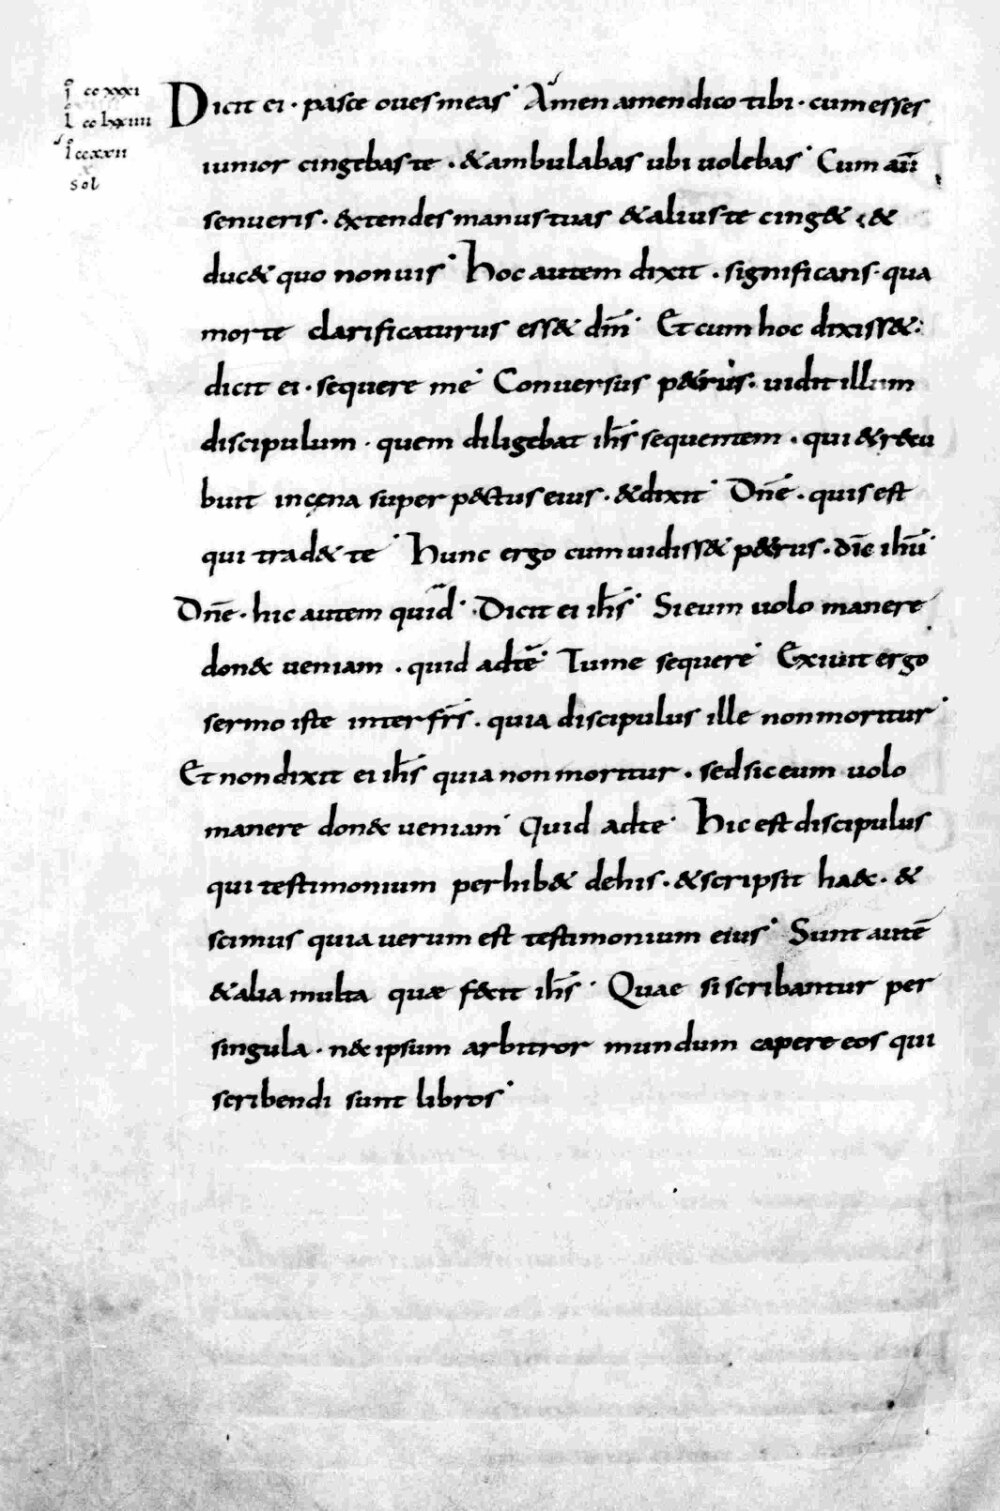 i ccxxxi
l cclxxiiii
i ccxxii
sol
Dicit ei · pasce oues meas· Amen amen dico tibi · cum esses
iunior cingebas te · & ambulabas ubi uolebas· Cum aut̄
senueris · &xtendes manus tuas & alius te cing& · &
duc& quo non uis· Hoc autem dixit · significans · qua
morte clarificaturus ess& dm̄· Et cum hoc dixiss&·
dicit ei · sequere me· Conuersus p&rus · uidit illum
discipulum · quem diligebat ih̄s sequentem · qui & r&cu
buit in cęna super p&ctus eius · & dixit· Dn̄e · quis est
qui trad& te· Hunc ergo cum uidiss& p&rus · dic̄ ih̄u·
Dn̄e · hic autem quid· Dicit ei ih̄s· Si eum uolo manere
don& ueniam · quid ad te· Tu me sequere· Exiuit ergo
sermo iste inter fr̄s · quia discipulus ille non moritur·
Et non dixit ei ih̄s quia non moritur · sed sic eum uolo
manere don& ueniam· Quid ad te· Hic est discipulus
qui testimonium perhib& de his · & scripsit ha& · &
scimus quia uerum est testimonium eius· Sunt autē
& alia multa quae f&cit ih̄s· Quae si scribantur per
singula · n& ipsum arbitror mundum capere eos qui
scribendi sunt libros·